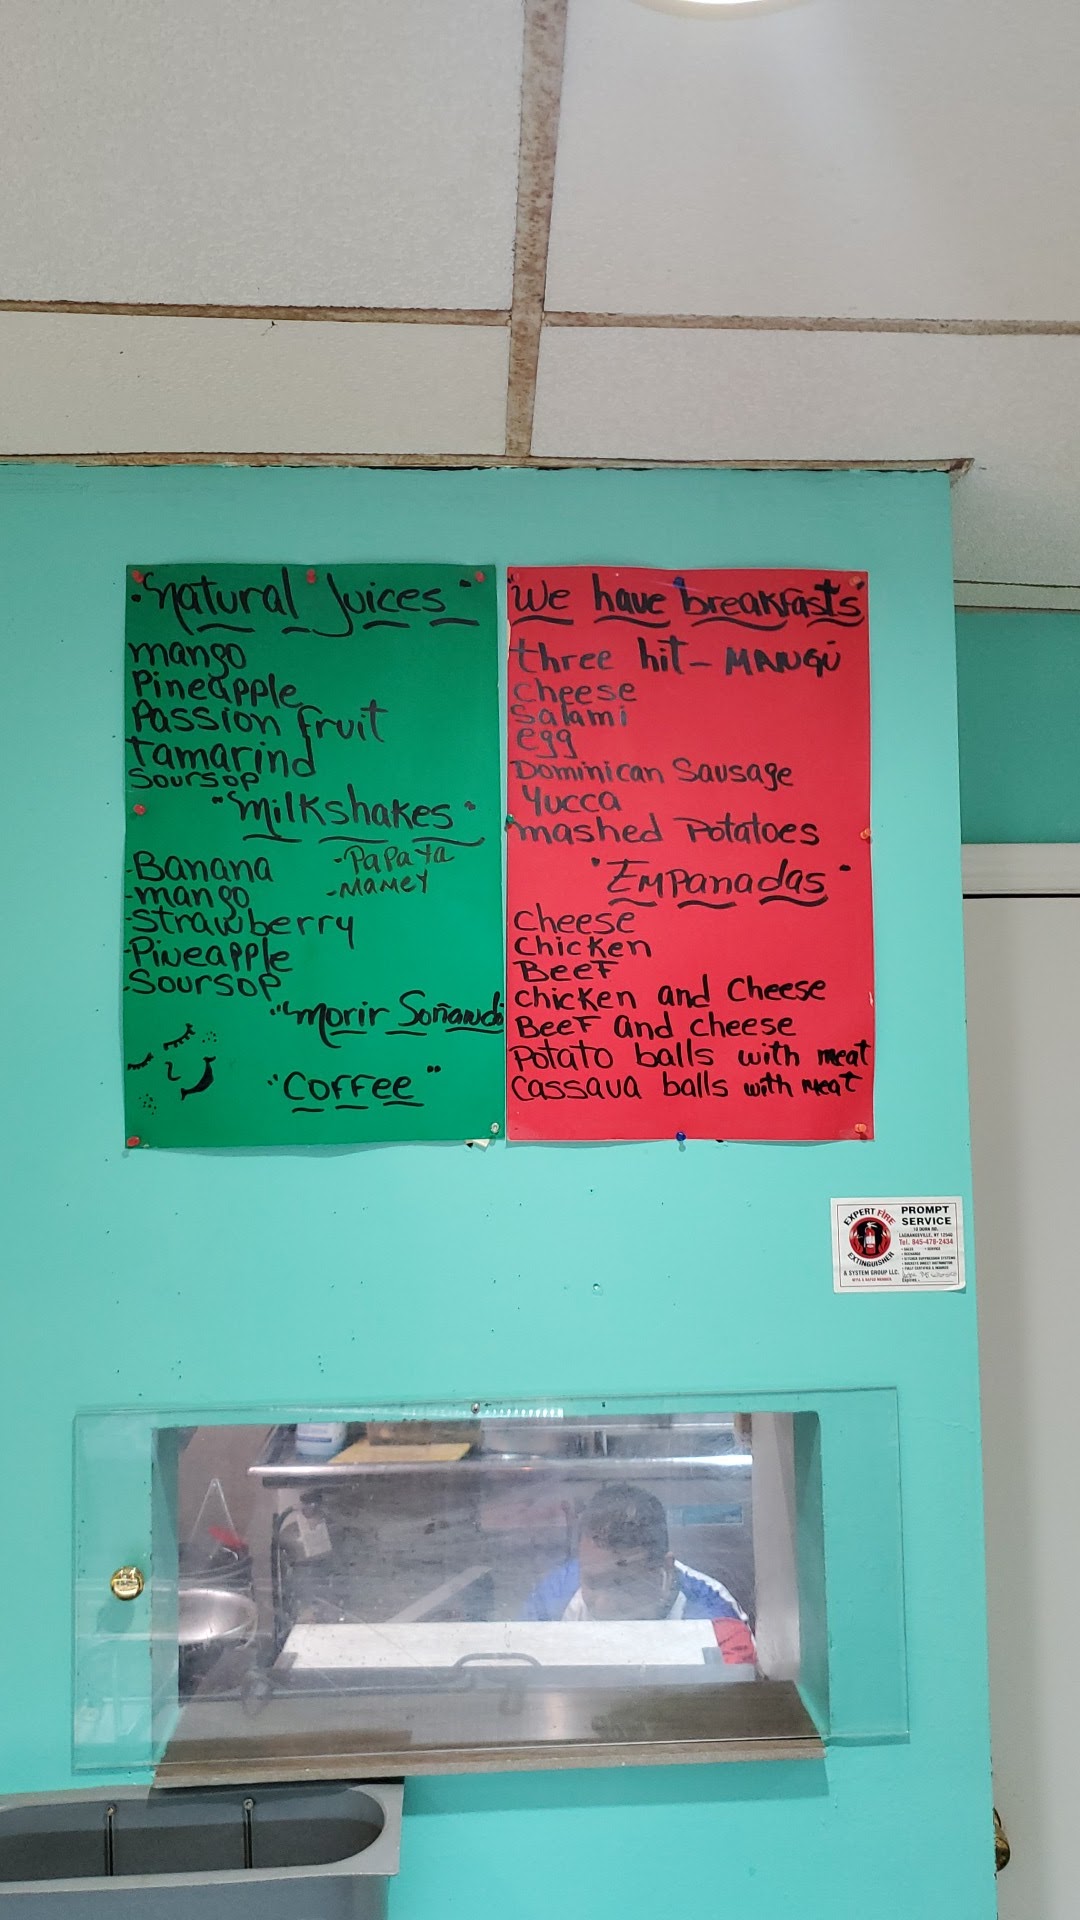 "Natural Juices"
mango
Pineapple
Passion fruit
Tamarind
Soursop
"Milkshakes"
-Banana
-mango
-Strawberry
-Pineapple
-Soursop
-PaPaya
-MAMEY
"Morir Soñando"
"Coffee"
"We have breakfasts"
three hit - MANGÚ
cheese
Salami
egg
Dominican Sausage
Yucca
mashed Potatoes
"Empanadas"
Cheese
Chicken
Beef
chicken and Cheese
Beef and cheese
Potato balls with meat
Cassava balls with meat
EXPERT FIRE
EXTINGUISHER
& SYSTEM GROUP LLC.
PROMPT
SERVICE
LAGRANGEVILLE, NY 12540
Tel. 845-478-2434